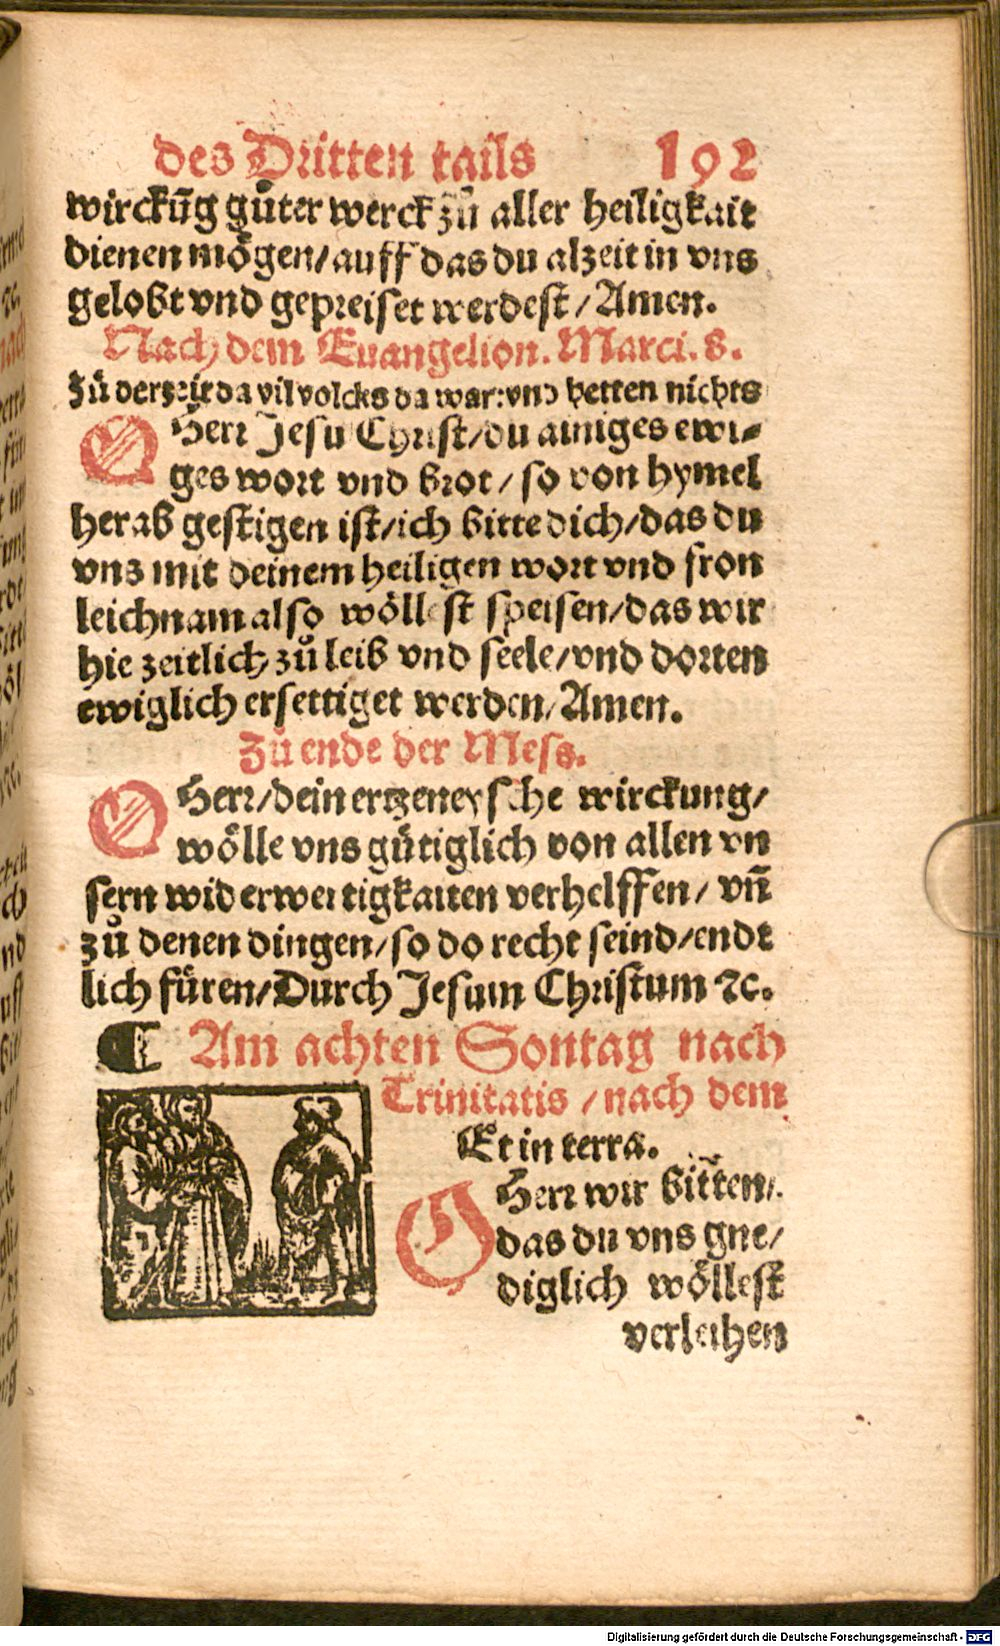 des Dritten tails 192
wirckūg gůter werck zů aller heiligkait
dienen mögen/auff das du alzeit in vns
gelobt vnd gepreiset werdest/Amen.
Nach dem Euangelion. Marci. 8.
Zů der zeit da vil volcks da war: vnd hetten nichts
O Herr Jesu Christ/du ainiges ewi-
ges wort vnd brot/so von hymel
herab gestigen ist/ich bitte dich/das du
vns mit deinem heiligen wort vnd fron
leichnam also wöllest speisen/das wir
hie zeitlich zů leib vnd seele/vnd dorten
ewiglich ersettiget werden/Amen.
Zů ende der Mess.
O Herr/dein ertzeneysche wirckung/
wölle vns gütiglich von allen vn
sern widerwertigkaiten verhelffen/vn̄
zů denen dingen/so do recht seind/endt
lich füren/Durch Jesum Christum ꝛc.
Am achten Sontag nach
Trinitatis/nach dem
Et in terra.
O Herr wir bitten/
das du vns gne/
diglich wöllest
verleihen
Digitalisierung gefördert durch die Deutsche Forschungsgemeinschaft - DFG